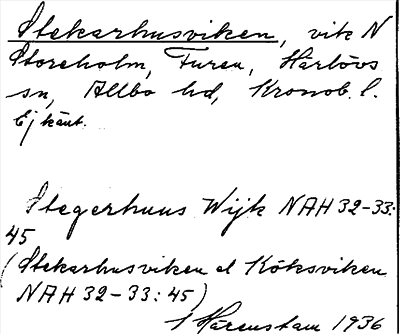 Stekarhusviken, vik N
Storeholm, Furen, Härlövs
sn, Allbo hd, Kronob. l.
Ej känt.
Stegerhuus Wijk NAH 32-33:
45
(Stekarhusviken el Köksviken
NAH 32-33:45)
Härenstam 1936